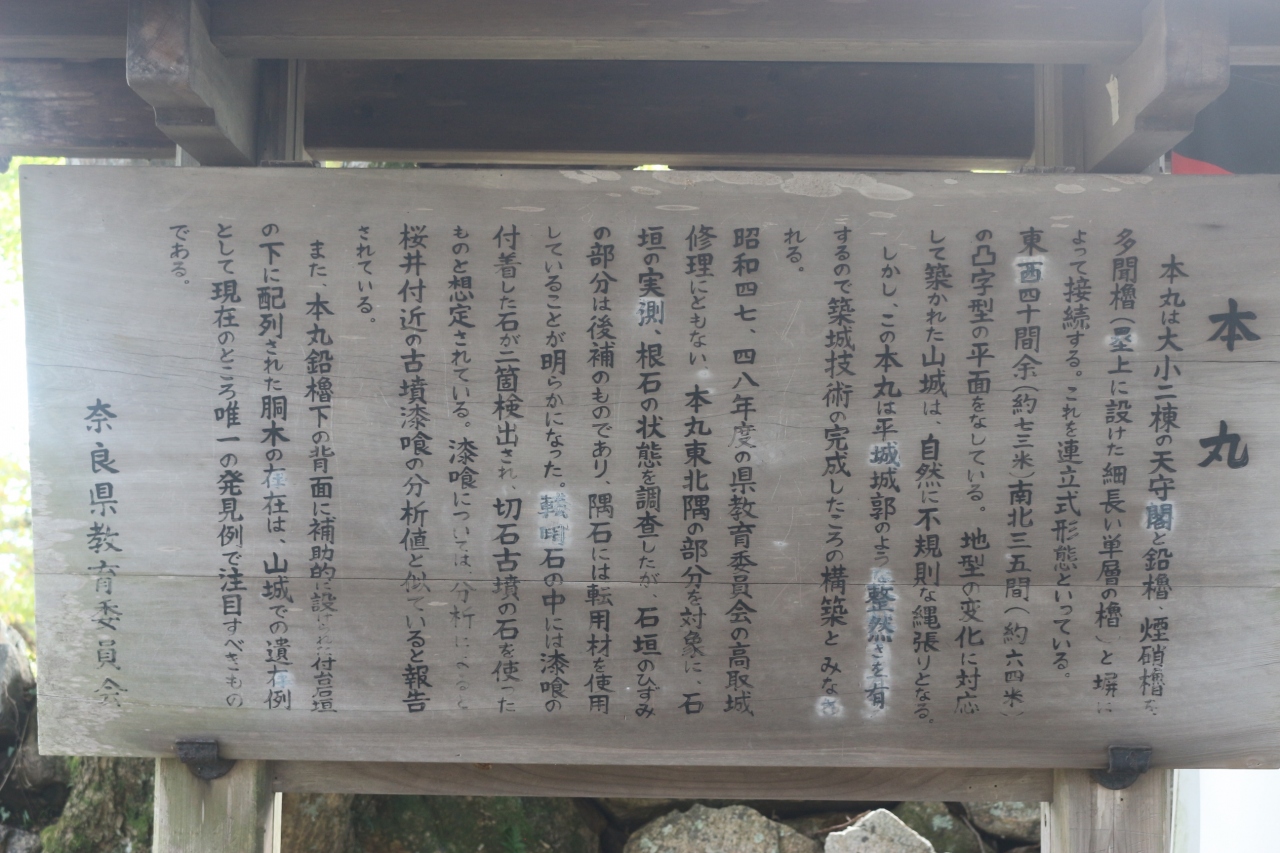 本丸
本丸は大小二棟の天守閣と鉛櫓、煙硝櫓を
多聞櫓(塁上に設けた細長い単層の櫓)と塀に
よって接続する。これを連立式形態といっている。
東西四十間余(約七三米)南北三五間(約六四米)
の凸字型の平面をなしている。地型の変化に対応
して築かれた山城は、自然に不規則な縄張りとなる。
しかし、この本丸は平城城郭のような整然さを有
するので築城技術の完成したころの構築とみなさ
れる。
昭和四七、四八年度の県教育委員会の高取城
修理にともない、本丸東北隅の部分を対象に、石
垣の実測、根石の状態を調査したが、石垣のひずみ
の部分は後補のものであり、隅石には転用材を使用
していることが明らかになった。転用石の中には漆喰の
付着した石が二箇検出され、切石古墳の石を使った
ものと想定されている。漆喰については、分析によると
桜井付近の古墳漆喰の分析値と似ていると報告
されている。
また、本丸鉛櫓下の背面に補助的に設けられた付台石垣
の下に配列された胴木の在在は、山城での遺存例
として現在のところ唯一の発見例で注目すべきもの
である。
奈良県教育委員会